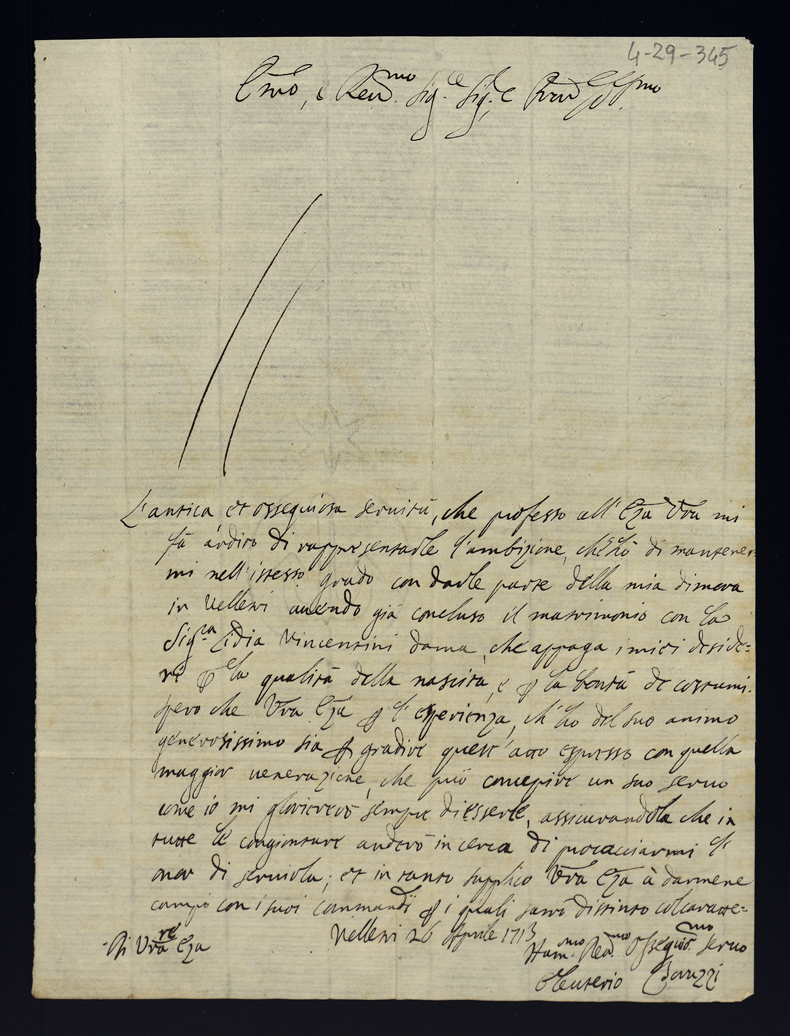 4-29-345
Em̃o, e Reṽ.mo Sig.re Sig.re e Pr̃on
L'antica et ossequiosa seruitù, che professo all'Eza Vr̃a mi
fà ardito di rappresentarle l'ambizione, ch'hò di mantener-
mi nell'istesso grado con darle parte della mia dimora
in Velleri auendo già concluso il matrimonio con la
Sig.ra Lidia Vincentini dama, che appaga i miei deside-
rij ꝑ la qualità della nascita, e ꝑ la bontà de costumi.
spero che Vr̃a Eza ꝑ l'esperienza, ch'ho del suo animo
generosissimo sia ꝑ gradire quest'atto espresso con quella
maggior uenerazione, che può concepire un suo seruo
come io mi glorierò sempre di esserle, assicurandola che in
tutte le congionture anderò in cerca di procacciarmi l'
onor di seruirla; et in tanto supplico Vr̃a Eza à darmene
campo con i suoi commandi ꝑ i quali sarò distinto col caratte-
re
Di Vr̃a Eza
Velleri 26 Aprile 1713
Hum.mo Reṽ.mo Ossequio.mo seruo
Eleuterio